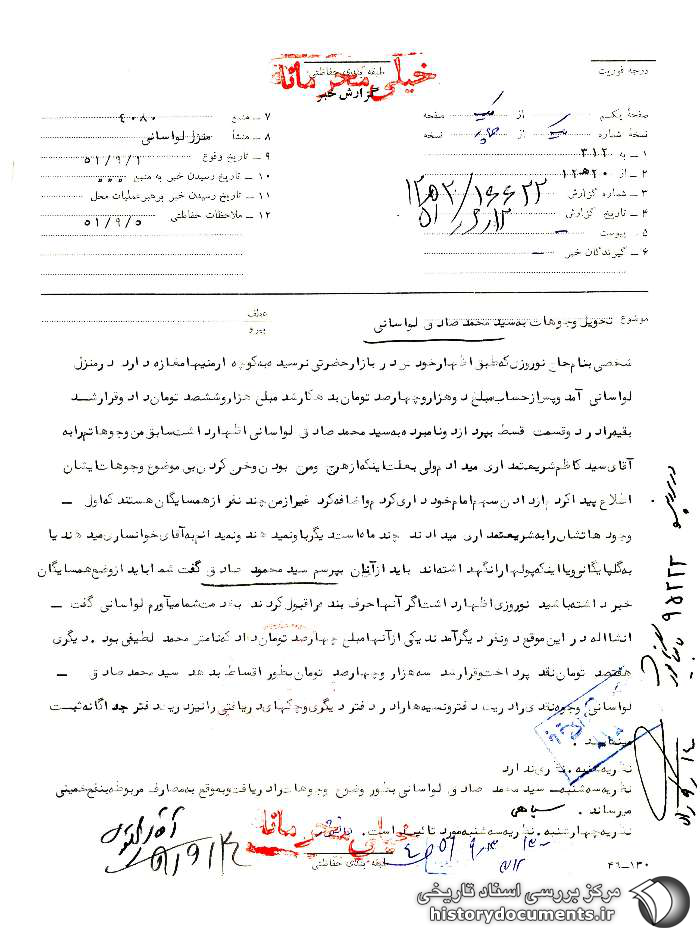 خیلی محرمانه
طبقه بندی حفاظتی
درجه فوریت
گزارش خبر
صفحهٔ یکم از یک صفحه
نسخهٔ شماره یک از چهار نسخه
۱ ـ به ۳۱۲
۲ ـ از ۲۰ه۱۲
۳ ـ شماره گزارش ۱۶۶۲۲/۲۰ه۱۲
۴ ـ تاریخ گزارش ۵۱/۹/۱۲
۵ ـ پیوست ـ
۶ ـ گیرندگان خبر ـ
۷ ـ منبع ۴۰۸۰
۸ ـ منشأ منزل لواسانی
۹ ـ تاریخ وقوع ۵۱/۹/۲
۱۰ ـ تاریخ رسیدن خبر به منبع ۰۰۰
۱۱ ـ تاریخ رسیدن خبر برهبر عملیات محل
۱۲ ـ ملاحظات حفاظتی ۵۱/۹/۵
موضوع تحویل وجوهات به سید محمد صادق لواسانی
عطف
پیرو
شخصی بنام حاج نوروزی که طبق اظهار خودش در بازار حضرتی نرسیده به کوچه ارمنیها مغازه دارد در منزل
لواسانی آمد و پس از حساب مبلغ دو هزار و چهارصد تومان بدهکار شد مبلغ هزار و ششصد تومان داد و قرار شد
بقیه را در دو قسمت قسط بپردازد و نامبرده به سید محمد صادق لواسانی اظهار داشت سابق من وجوهاتم را به
آقای سید کاظم شریعتمداری میدادم ولی بعلت اینکه از هرج و مرج بودن و خرج کردن بی موضوع وجوهات ایشان
اطلاع پیدا کردم از دادن سهم امام خودداری کردم و اضافه کرد غیر از من چند نفر از همسایگان هستند که اول ـ
وجوهاتشان را به شریعتمداری میدادند چند ماه است دیگر یا نمیدهند و نمیدانم به آقای خوانساری میدهند یا
به گلپایگانی و یا اینکه پولها را نگهداشته اند باید از آنها بپرسم سید محمود صادق گفت شما باید از وضع همسایگان
خبر داشته باشید نوروزی اظهار داشت اگر آنها حرف بنده را قبول کردند به خدمت شما میآورم لواسانی گفت ـ
انشااله در این موقع دو نفر دیگر آمدند یکی از آنها مبلغ چهارصد تومان داد که نامش محمد لطیفی بود. دیگری
هفتصد تومان نقد پرداخت و قرار شد سه هزار و چهارصد تومان بطور اقساط بدهد سید محمد صادق ـ
لواسانی وجوه نقدی را در یک دفتر و نسیه ها را در دفتر دیگری و چکهای دریافتی را نیز در یک دفتر جداگانه ثبت
مینماید.
نظریه شنبه. نظری ندارد
نظریه سه شنبه ـ سید محمد صادق لواسانی بطور وضوح وجوهات را دریافت و به موقع به مصارف مربوطه بنفع خمینی
میرساند. سپاهی
نظریه چهارشنبه. نظریه سه شنبه مورد تائید است.
خیلی محرمانه
طبقه بندی حفاظتی
۴۶ـ۱۳۰
مرکز بررسی اسناد تاریخی
historydocuments.ir